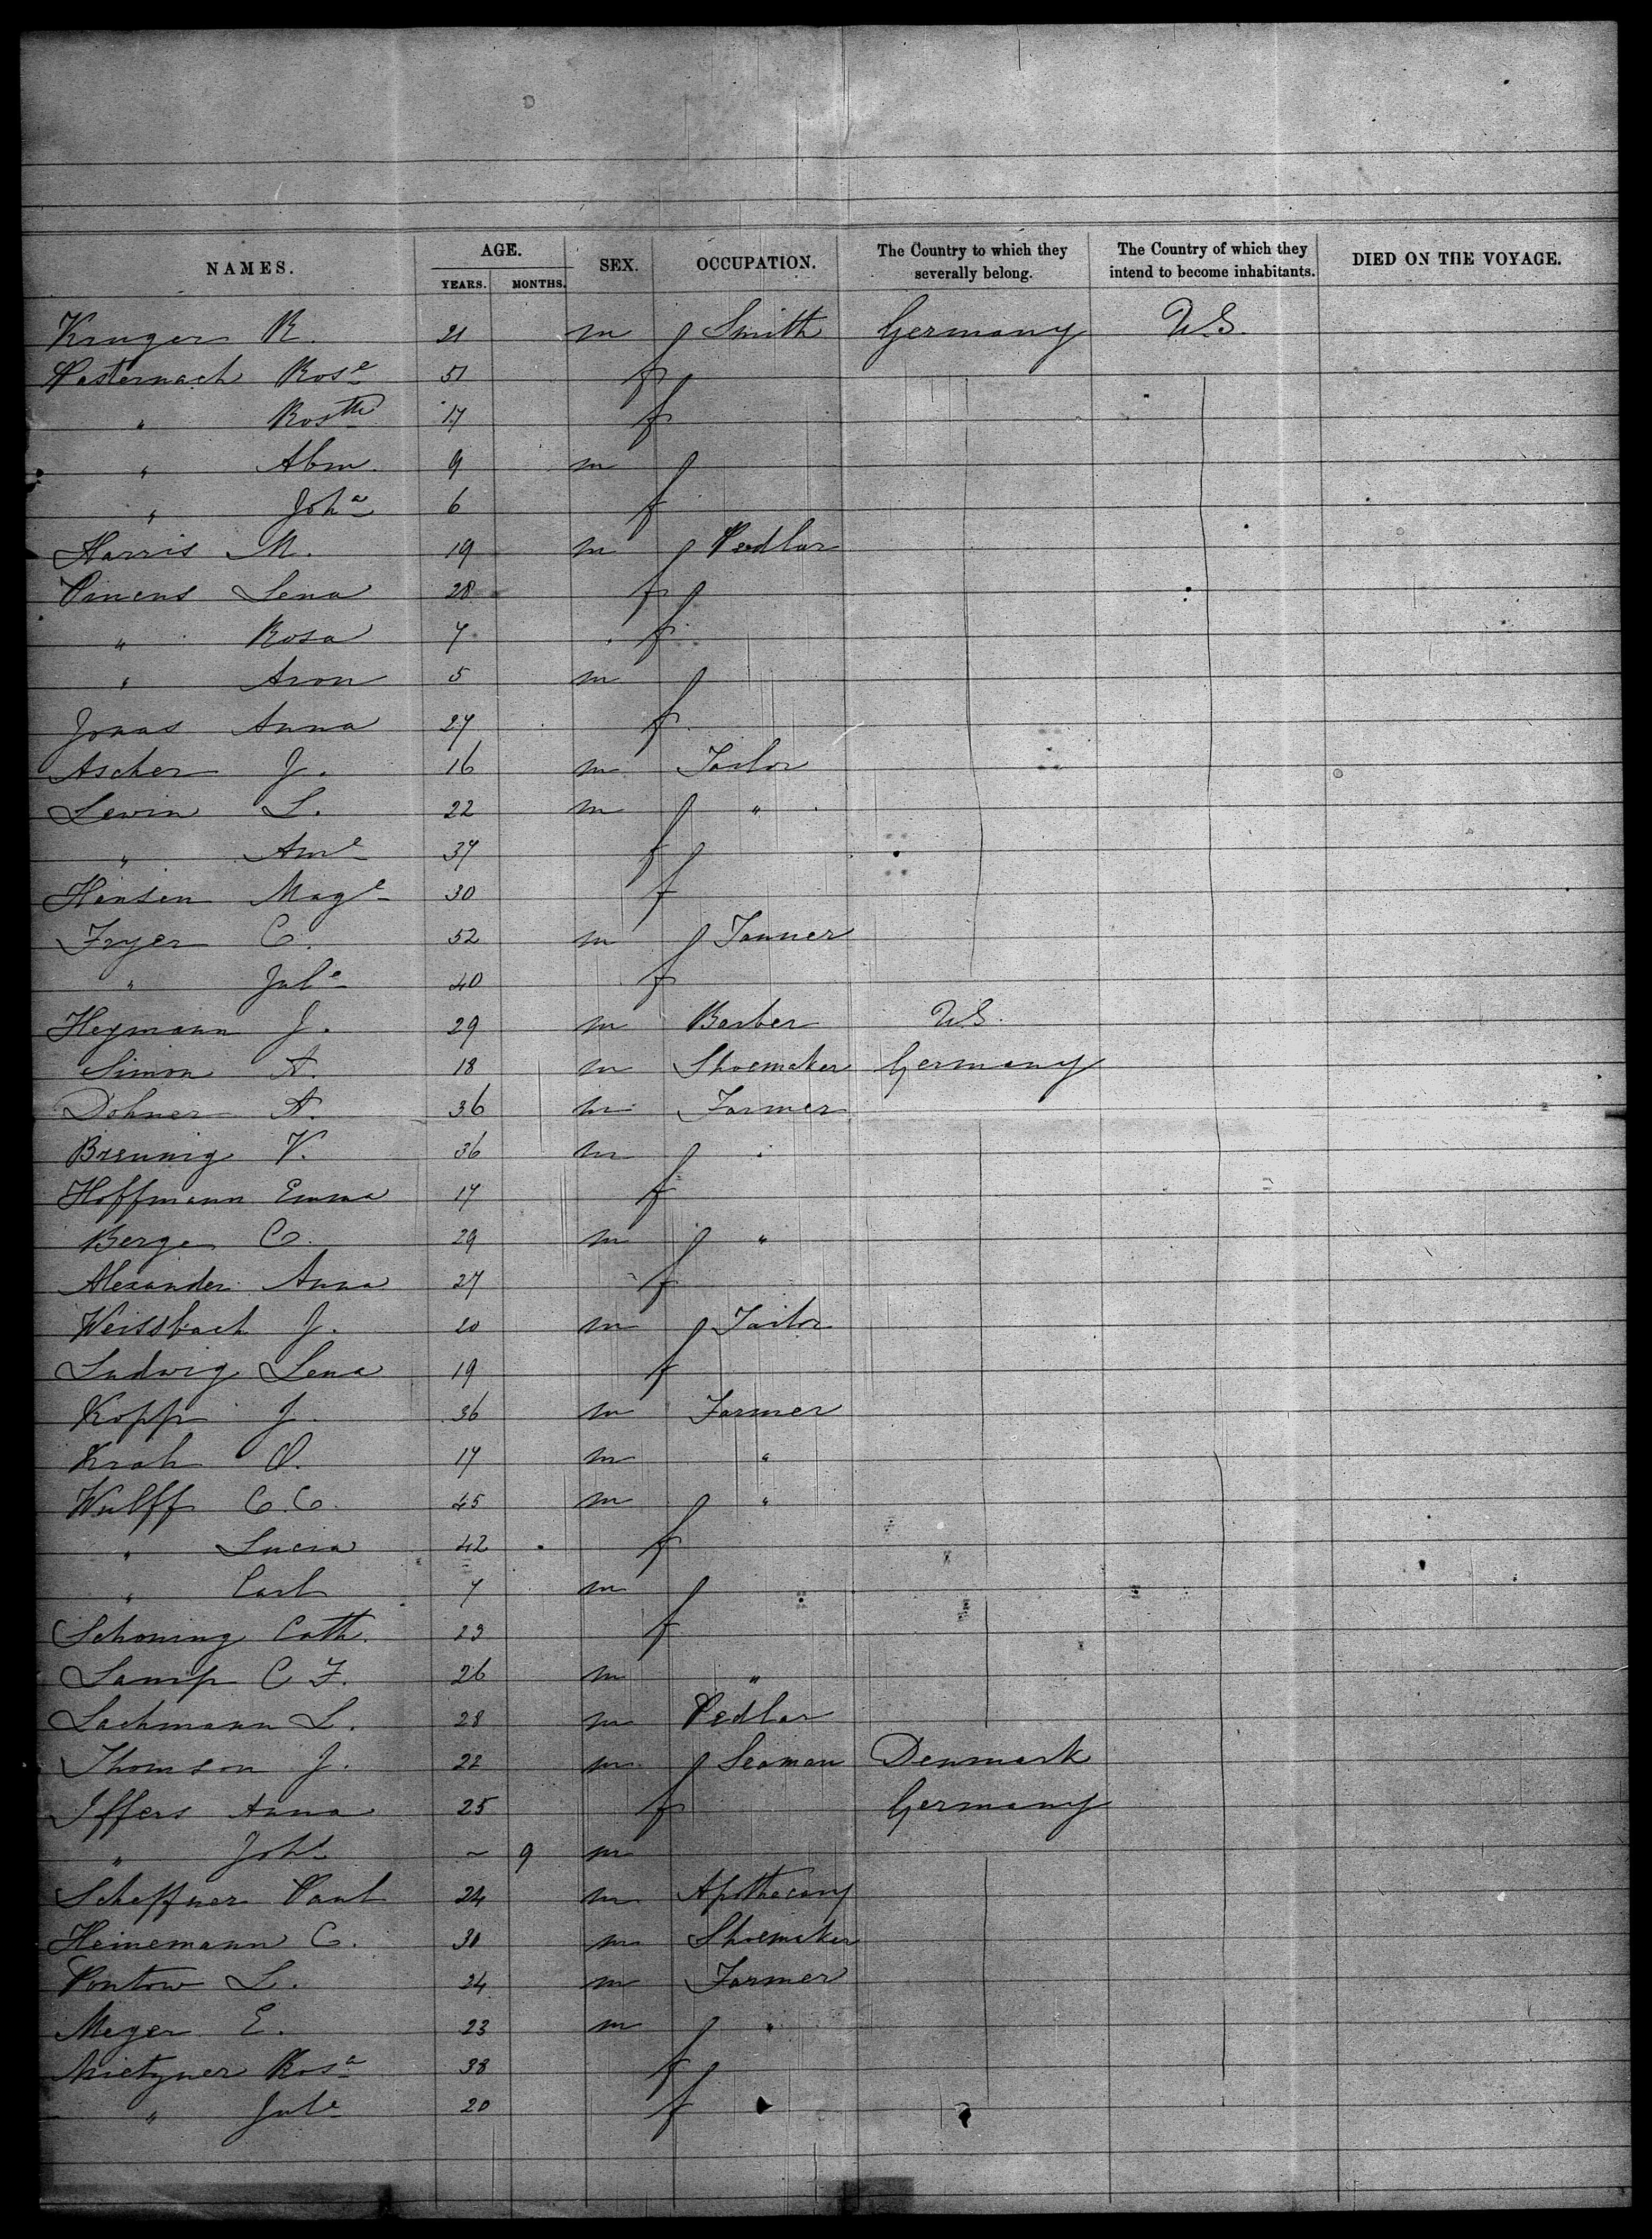 NAMES. AGE. YEARS. MONTHS. SEX. OCCUPATION. The Country to which they severally belong. The Country of which they intend to become inhabitants. DIED ON THE VOYAGE.
Kruger R. 21 m Smith Germany U.S.
Pasternach Rose 51 f
" Rosth 17 f
" Abm. 9 m
" Joha 6 f
Harris M. 19 m Pedlar
Pincus Lena 28 f
" Rosa 7 f
" Aron 5 m
Jonas Anna 27 f
Ascher J. 16 m Tailor
Lewin L. 22 m "
" Ame 37 f
Hensen Mage 30 f
Fryer C. 52 m Tanner
" Jule 40 f
Heymann J. 29 m Barber U.S.
Simon A. 18 m Shoemaker Germany
Dohner A. 36 m Farmer
Breunig V. 36 m "
Hoffmann Emma 17 f
Berge C. 29 m "
Alexander Anna 27 f
Weissbach J. 20 m Tailor
Ludwig Lena 19 f
Kopp J. 36 m Farmer
Krah O. 17 m "
Wulff C. C. 45 m "
" Lucia 42 f
" Carl 7 m
Schoning Cath. 23 f
Lamp C F. 26 m "
Lachmann L. 28 m Pedlar
Thomson J. 22 m Seaman Denmark
Iffers Anna 25 f Germany
" Johs ~ 9 m
Scheffner Paul 24 m Apothecary
Heinemann C. 30 m Shoemaker
Pontow L. 24 m Farmer
Meyer E. 23 m "
Mietzner Rosa 38 f
" Jule 20 f